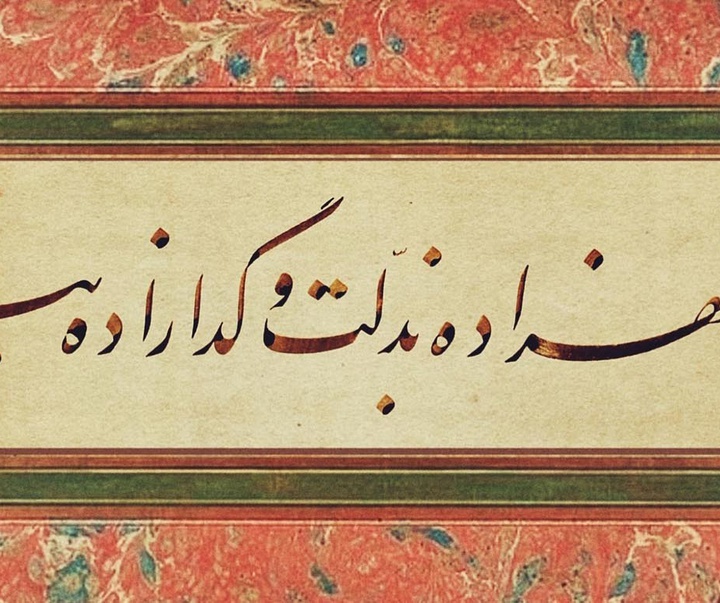 هزاده بذلّت و گدازاده